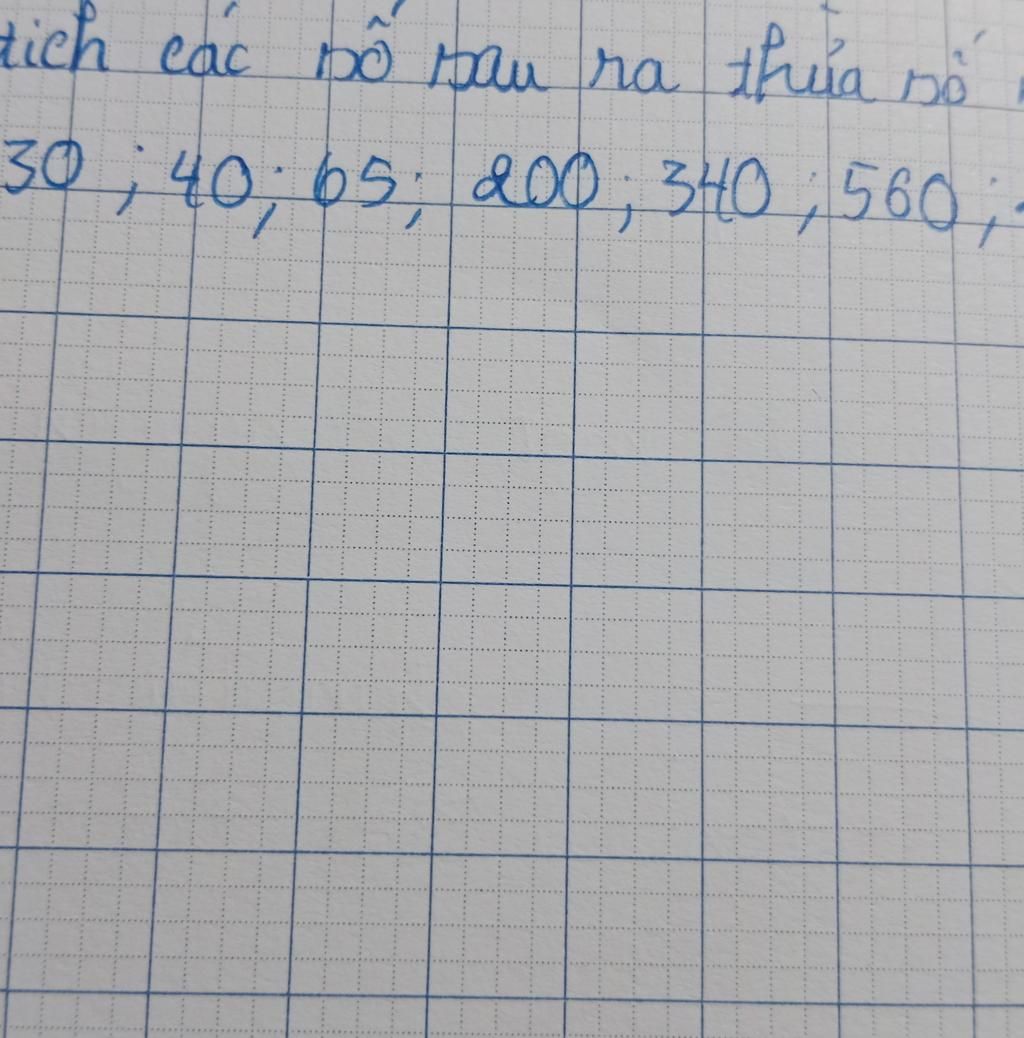 tich các số sau ra thừa số
30 ; 40 ; 65 ; 200 ; 340 ; 560 ;